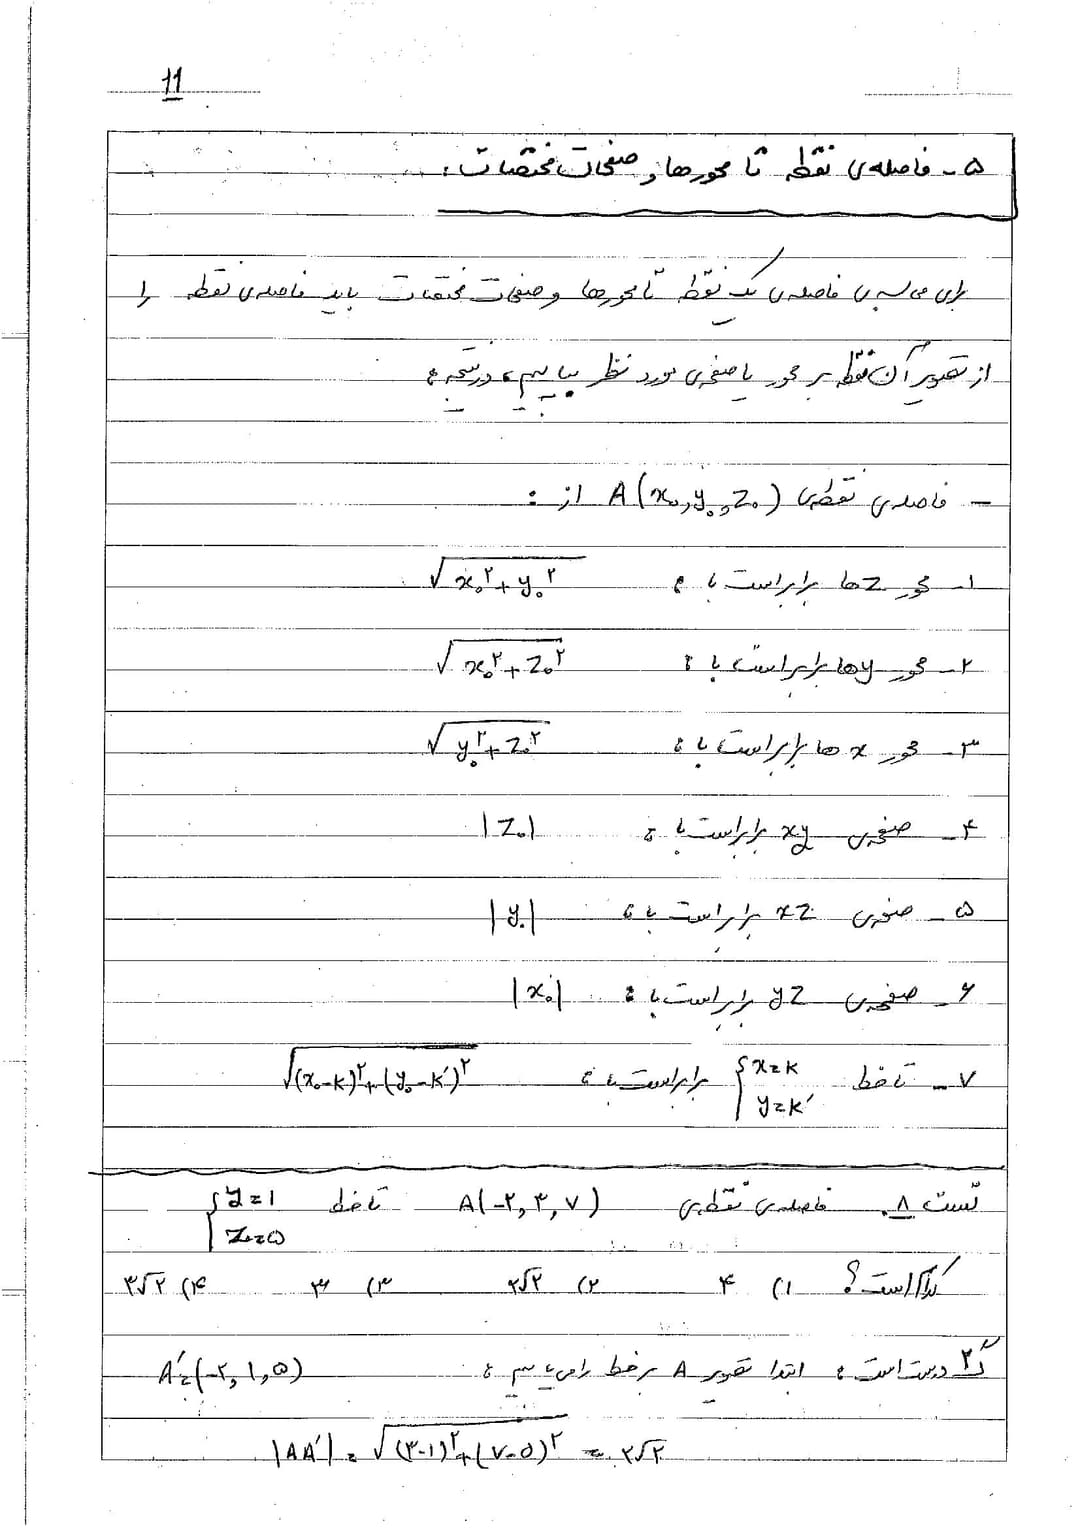 11
۵- فاصله‌ی نقطه تا محورها و صفحات مختصات:
برای محاسبه‌ی فاصله‌ی یک نقطه تا محورها و صفحات مختصات باید فاصله‌ی نقطه را
از تصویر آن نقطه بر محور یا صفحه‌ی مورد نظر بیابیم، در نتیجه:
- فاصله‌ی نقطه‌ی A(x₀,y₀,z₀) از:
۱- محور zها برابر است با: √(x₀²+y₀²)
۲- محور yها برابر است با: √(x₀²+z₀²)
۳- محور xها برابر است با: √(y₀²+z₀²)
۴- صفحه‌ی xy برابر است با: |z₀|
۵- صفحه‌ی xz برابر است با: |y₀|
۶- صفحه‌ی yz برابر است با: |x₀|
۷- تا خط {x=k, y=k′ برابر است با: √((x₀-k)²+(y₀-k′)²)
تست ۸. فاصله‌ی نقطه‌ی A(-۲,۳,۷) تا خط {y=1, z=۵
کدام است؟ ۱) ۴ ۲) ۲√۲ ۳) ۳ ۴) ۳√۲
گ۲ درست است: ابتدا تصویر A بر خط را می‌یابیم: A′=(-۲,۱,۵)
|AA′| = √((۳-۱)²+(۷-۵)²) = ۲√۲